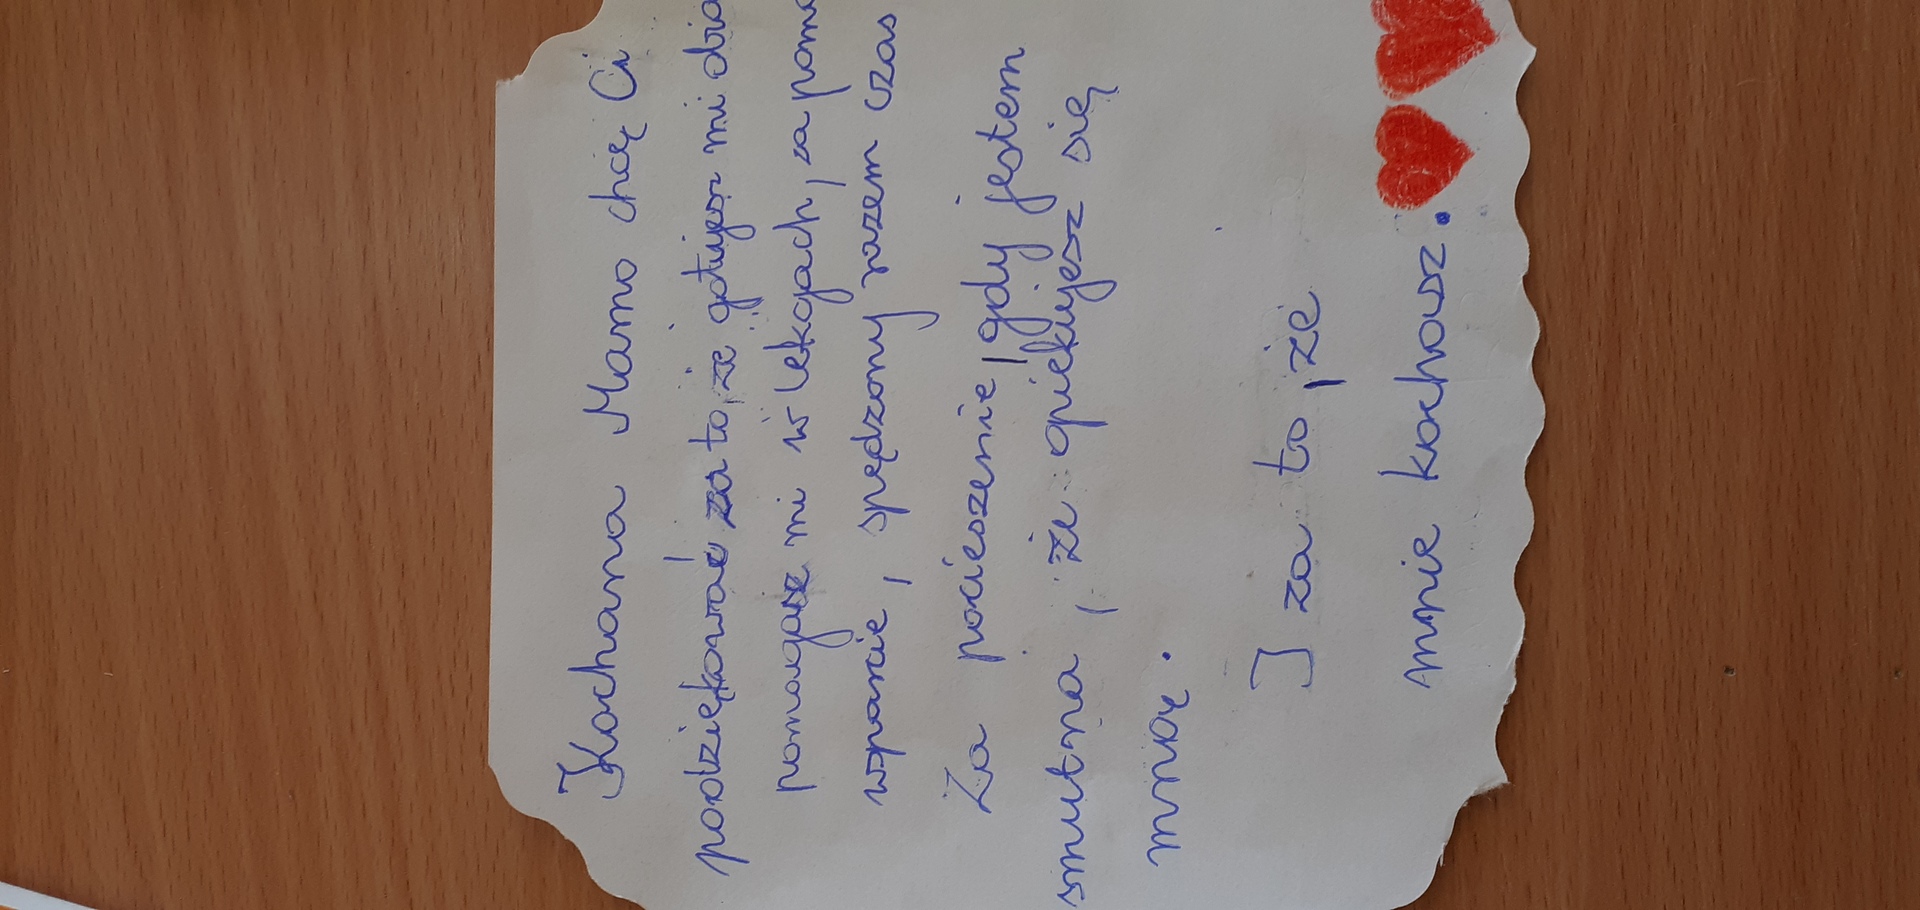 Kochana Mamo chcę Ci
podziękować za to, że gotujesz mi
pomagasz mi w lekcjach, za
wsparcie, spędzony razem czas
Za pocieszenie, gdy jestem
smutna, że opiekujesz się
mną.
I za to, że
mnie kochasz.